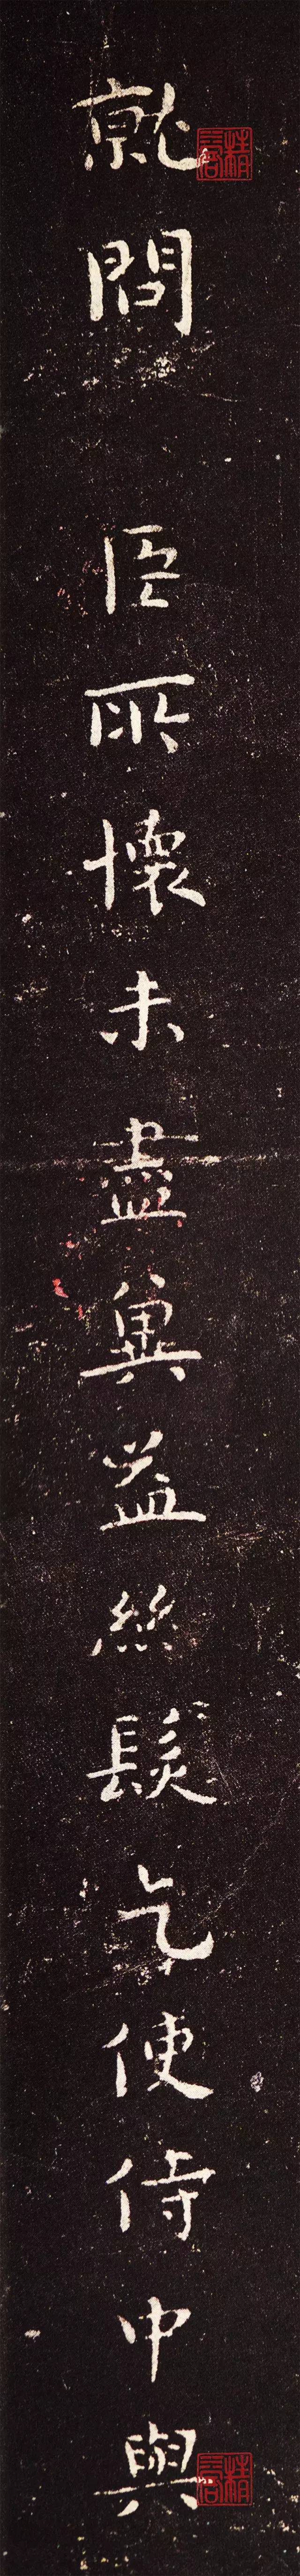 就問臣所懷未盡冀益絲髮乞使侍中與